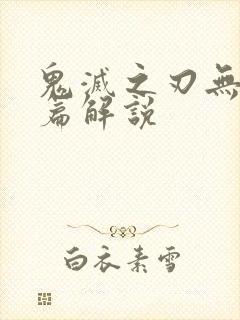 鬼滅之刃無
篇解說
白衣素雪